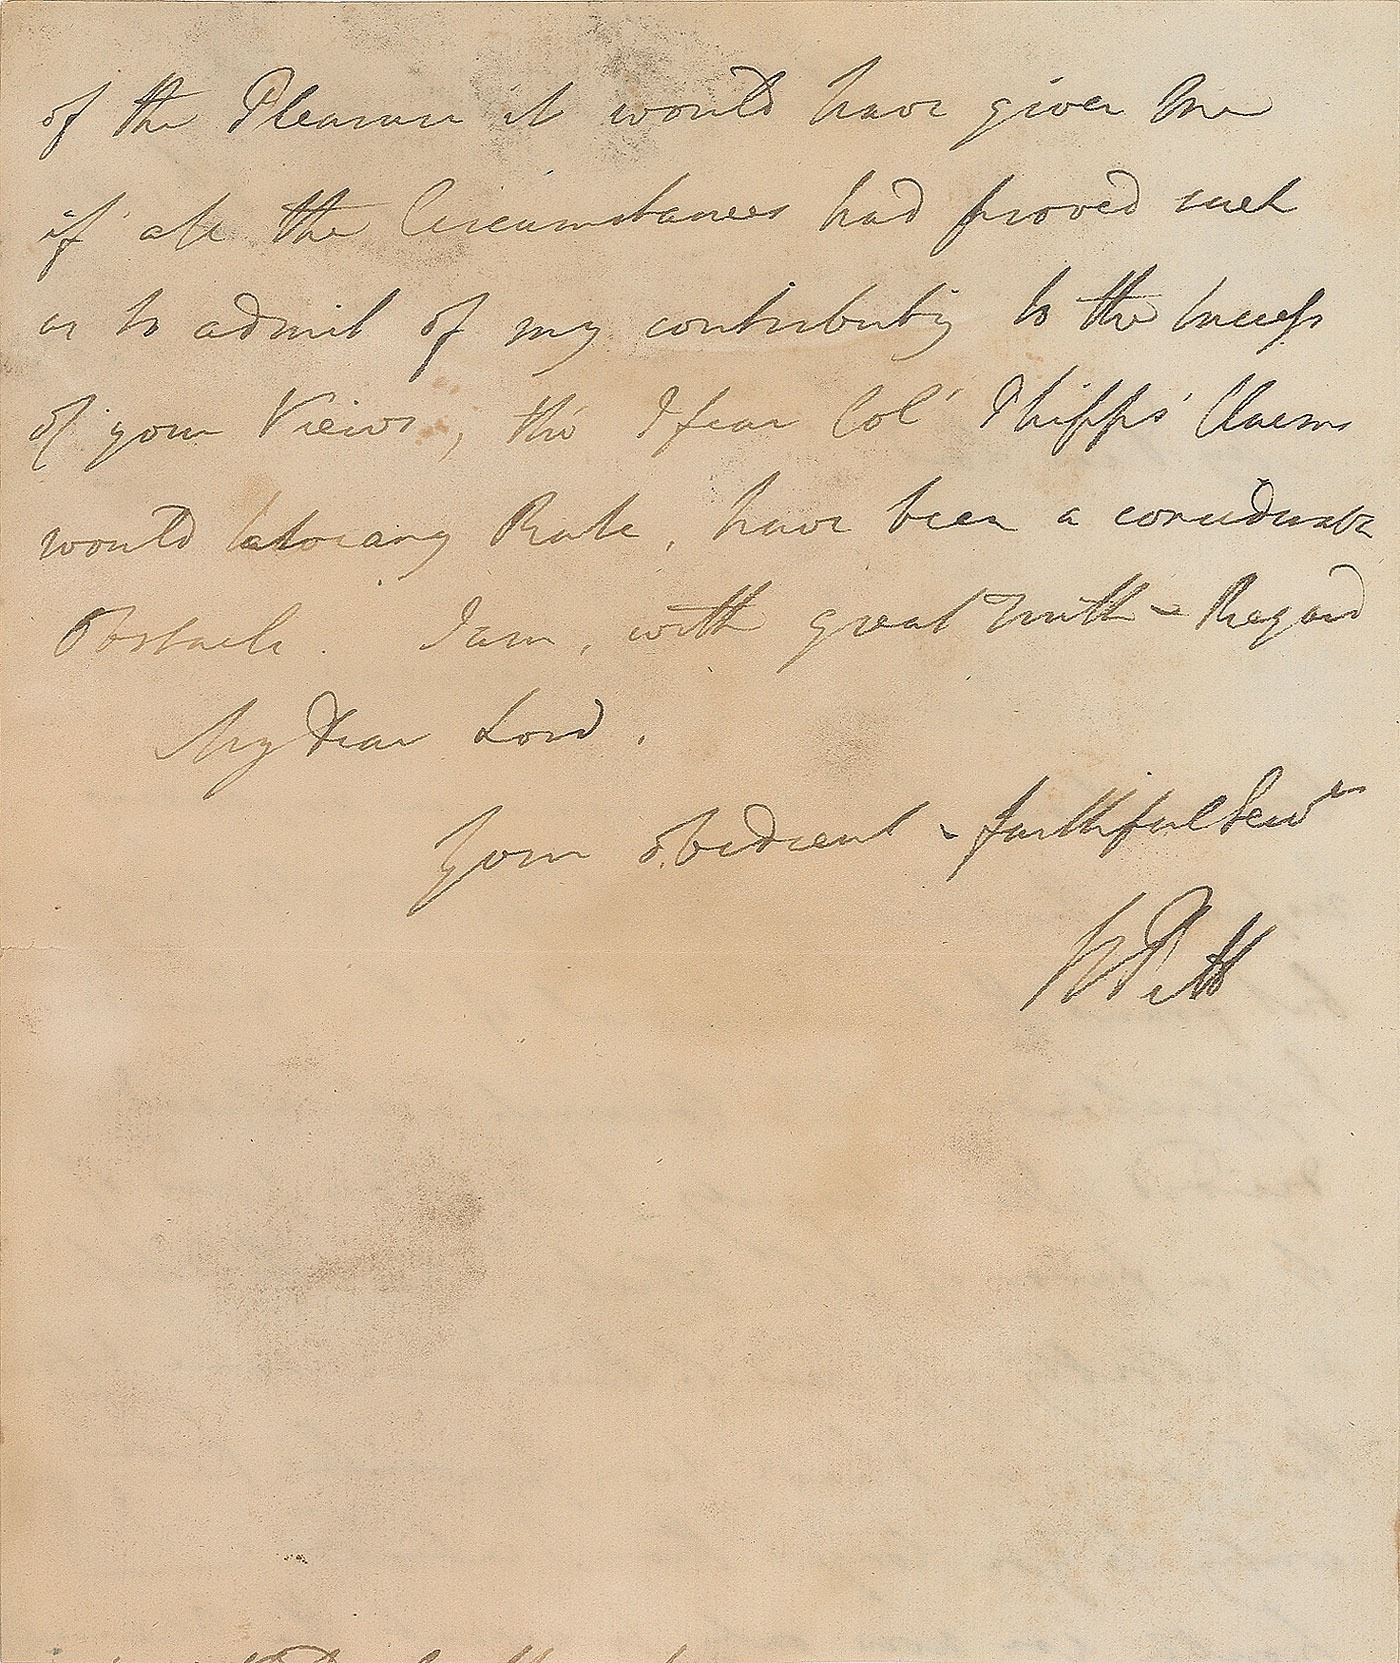 of the Pleasure it would have given me
if all the Circumstances had proved such
as to admit of my contributing to the Success
of your Views, tho' I fear Col' Phipps' Claims
would at any Rate, have been a considerable
Obstacle. I am, with great Truth & Regard
My Dear Lord,
Your obedient & faithful Serv
W Pitt